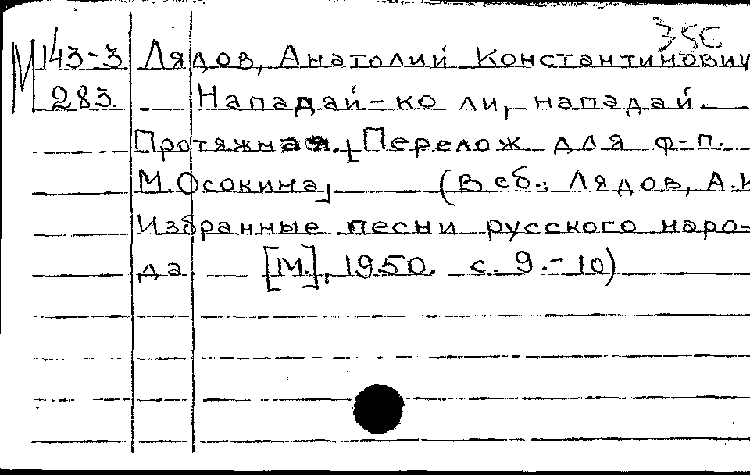 35С
М 143-3 Лядов, Анатолий Константинович
283. Нападай-ко ли, нападай.
Протяжная. [Перелож. для ф-п.
М. Осокина] (В сб.: Лядов, А.К
Избранные песни русского наро-
да [М.], 1950. с. 9.-10)